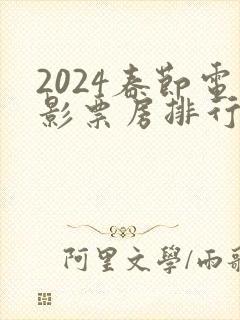 2024春節電
影票房排行
阿里文學/雨歌